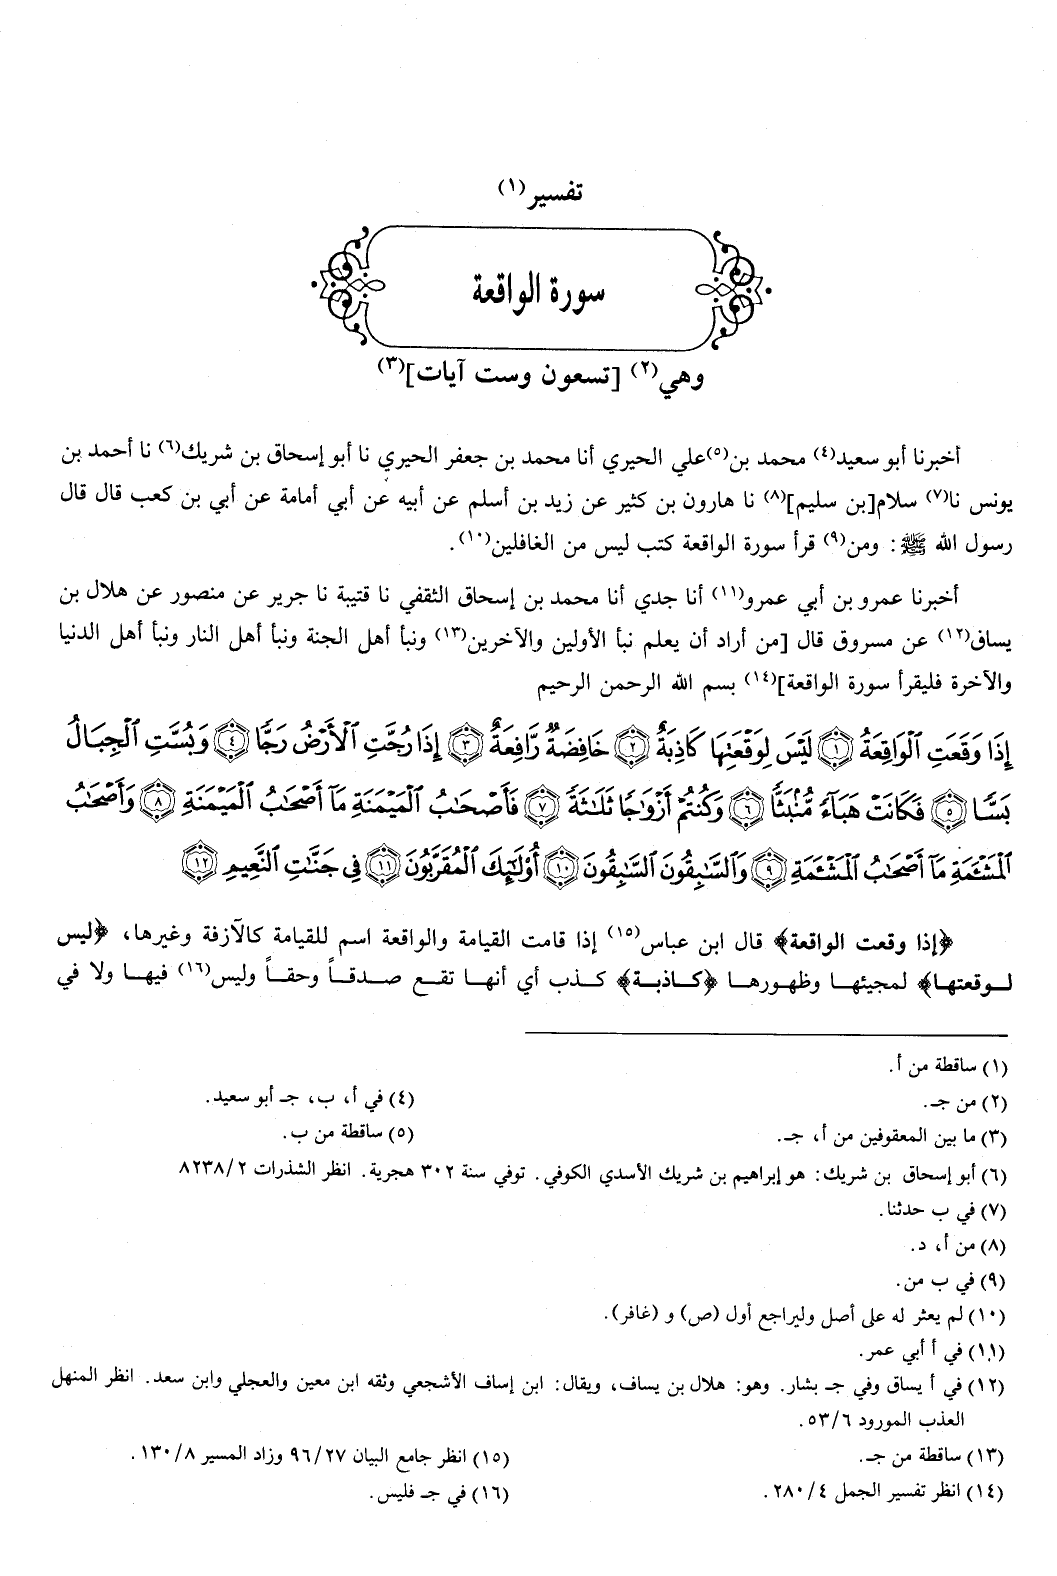 تفسير(١)
سورة الواقعة
وهي(٢) [تسعون وست آيات](٣)
أخبرنا أبو سعيد(٤) محمد بن(٥)علي الحيري أنا محمد بن جعفر الحيري نا أبو إسحاق بن شريك(٦) نا أحمد بن
يونس نا(٧) سلام[بن سليم](٨) نا هارون بن كثير عن زيد بن أسلم عن أبيه عن أبي أمامة عن أبي بن كعب قال قال
رسول الله ﷺ: ومن(٩) قرأ سورة الواقعة كتب ليس من الغافلين(١٠).
أخبرنا عمرو بن أبي عمرو(١١) أنا جدي أنا محمد بن إسحاق الثقفي نا قتيبة نا جرير عن منصور عن هلال بن
يساف(١٢) عن مسروق قال [من أراد أن يعلم نبأ الأولين والآخرين(١٣) ونبأ أهل الجنة ونبأ أهل النار ونبأ أهل الدنيا
والآخرة فليقرأ سورة الواقعة](١٤) بسم الله الرحمن الرحيم
إِذَا وَقَعَتِ ٱلْوَاقِعَةُ ﴿١﴾ لَيْسَ لِوَقْعَتِهَا كَاذِبَةٌ ﴿٢﴾ خَافِضَةٌ رَّافِعَةٌ ﴿٣﴾ إِذَا رُجَّتِ ٱلْأَرْضُ رَجًّا ﴿٤﴾ وَبُسَّتِ ٱلْجِبَالُ
بَسًّا ﴿٥﴾ فَكَانَتْ هَبَآءً مُّنۢبَثًّا ﴿٦﴾ وَكُنتُمْ أَزْوَٰجًا ثَلَٰثَةً ﴿٧﴾ فَأَصْحَٰبُ ٱلْمَيْمَنَةِ مَآ أَصْحَٰبُ ٱلْمَيْمَنَةِ ﴿٨﴾ وَأَصْحَٰبُ
ٱلْمَشْـَٔمَةِ مَآ أَصْحَٰبُ ٱلْمَشْـَٔمَةِ ﴿٩﴾ وَٱلسَّٰبِقُونَ ٱلسَّٰبِقُونَ ﴿١٠﴾ أُو۟لَٰٓئِكَ ٱلْمُقَرَّبُونَ ﴿١١﴾ فِى جَنَّٰتِ ٱلنَّعِيمِ ﴿١٢﴾
﴿إذا وقعت الواقعة﴾ قال ابن عباس(١٥) إذا قامت القيامة والواقعة اسم للقيامة كالآزفة وغيرها، ﴿ليس
لوقعتها﴾ لمجيئها وظهورها ﴿كاذبة﴾ كذب أي أنها تقع صدقاً وحقاً وليس(١٦) فيها ولا في
(١) ساقطة من أ.
(٢) من جـ.
(٣) ما بين المعقوفين من أ، جـ.
(٤) في أ، ب، جـ أبو سعيد.
(٥) ساقطة من ب.
(٦) أبو إسحاق بن شريك: هو إبراهيم بن شريك الأسدي الكوفي. توفي سنة ٣٠٢ هجرية. انظر الشذرات ٨٢٣٨/٢
(٧) في ب حدثنا.
(٨) من أ، د.
(٩) في ب من.
(١٠) لم يعثر له على أصل وليراجع أول (ص) و (غافر).
(١١) في أ أبي عمر.
(١٢) في أ يساق وفي جـ بشار. وهو: هلال بن يساف، ويقال: ابن إساف الأشجعي وثقه ابن معين والعجلي وابن سعد. انظر المنهل
العذب المورود ٥٣/٦.
(١٣) ساقطة من جـ.
(١٤) انظر تفسير الجمل ٢٨٠/٤.
(١٥) انظر جامع البيان ٩٦/٢٧ وزاد المسير ١٣٠/٨.
(١٦) في جـ فليس.